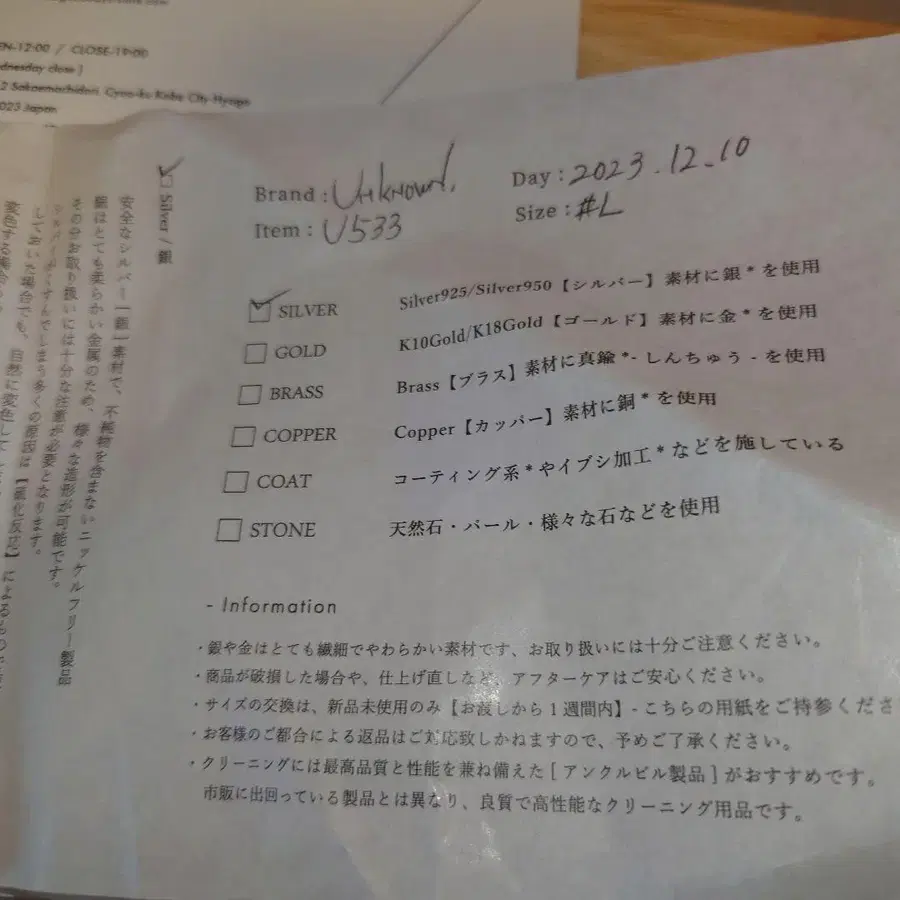 EN-12:00 / CLOSE-19:00
dnesday close ]
2 Sakaemachidori Cyuo-ku Kobe City Hyogo
023 Japan
Silver / 銀
安全なシルバー【銀】素材で、不純物を含まないニッケルフリー製品
銀はとても柔らかい金属のため、様々な造形が可能です。
その分お取り扱いには十分な注意が必要となります。
しまう多くの原因は【硫化反応】によるもの
しておいた場合でも、自然に変色して
変色する場合
Brand : Unknown.
Day : 2023.12.10
Item : U533
Size : #L
SILVER Silver925/Silver950【シルバー】素材に銀*を使用
GOLD K10Gold/K18Gold【ゴールド】素材に金*を使用
BRASS Brass【ブラス】素材に真鍮*- しんちゅう - を使用
COPPER Copper【カッパー】素材に銅*を使用
COAT コーティング系*やイブシ加工*などを施している
STONE 天然石・パール・様々な石などを使用
- Information
・銀や金はとても繊細でやわらかい素材です、お取り扱いには十分ご注意ください。
・商品が破損した場合や、仕上げ直しなど、アフターケアはご安心ください。
・サイズの交換は、新品未使用のみ【お渡しから1週間内】- こちらの用紙をご持参くださ
・お客様のご都合による返品はご対応致しかねますので、予めご了承ください。
・クリーニングには最高品質と性能を兼ね備えた [ アンクルビル製品 ] がおすすめです。
市販に出回っている製品とは異なり、良質で高性能なクリーニング用品です。